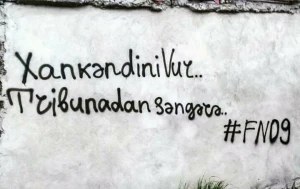 XankəndiniVur..
Tribunadan Səngərə..
#FN09